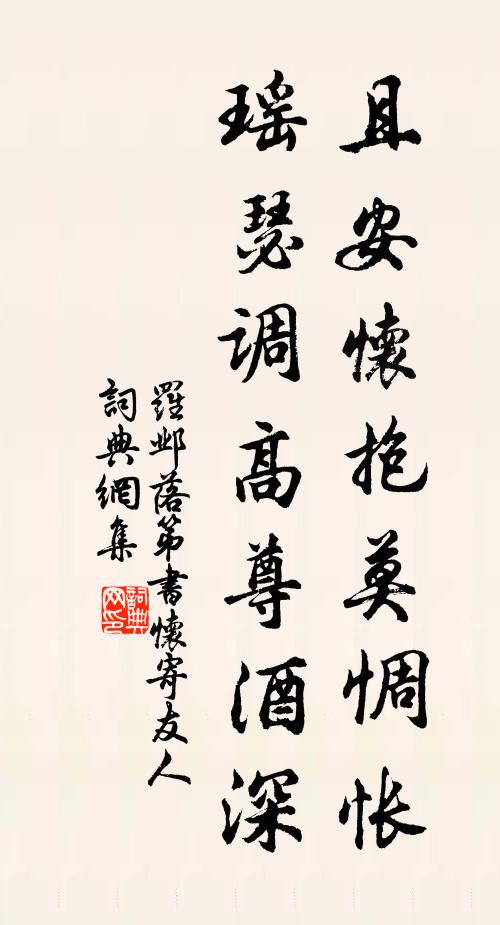 且安懷抱莫惆怅
瑶瑟调高尊酒深
羅邺落第書懷寄友人
詞典網集
詞典网印